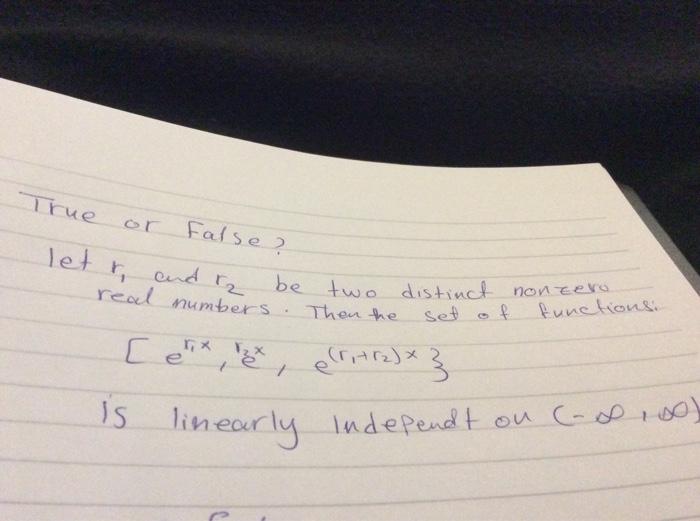 True or False?
let r₁ and r₂ be two distinct nonzero
real numbers. Then the set of functions:
[ e^{r₁x}, e^{r₂x}, e^{(r₁+r₂)x} }
is linearly Independt on (-∞, ∞)